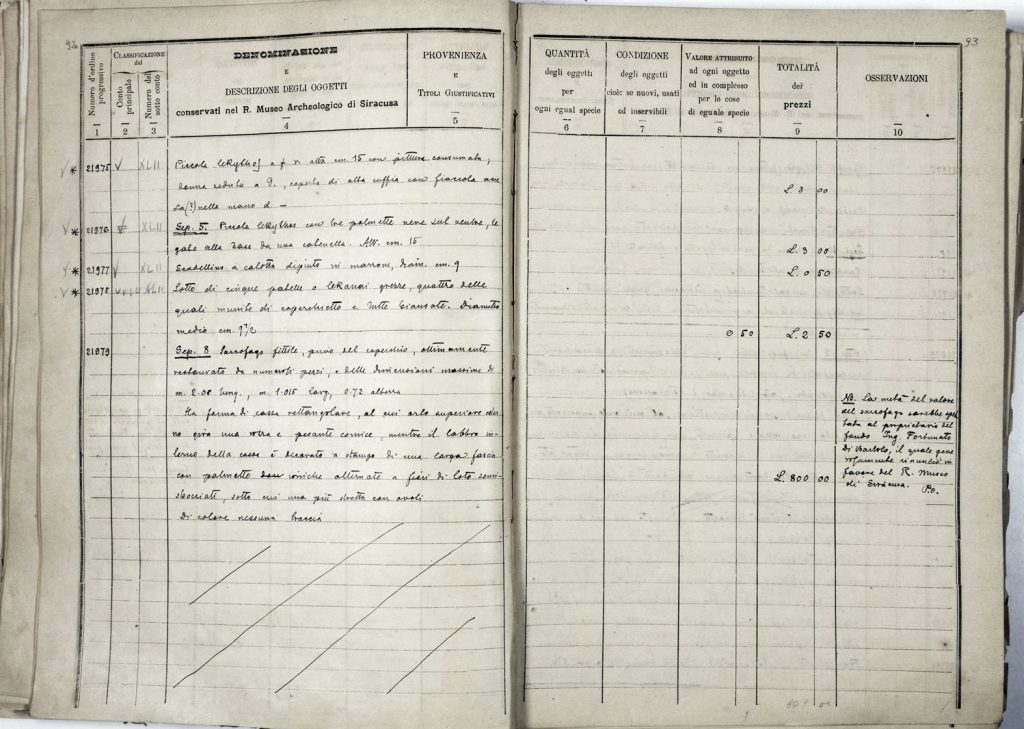 92
93
Numero d'ordine progressivo
CLASSIFICAZIONE
del
Conto principale
Numero del sotto conto
DENOMINAZIONE
E
DESCRIZIONE DEGLI OGGETTI
conservati nel R. Museo Archeologico di Siracusa
PROVENIENZA
E
TITOLI GIUSTIFICATIVI
1
2
3
4
5
QUANTITÀ
degli oggetti
per
ogni egual specie
6
CONDIZIONE
degli oggetti
cioè: se nuovi, usati
od inservibili
7
VALORE ATTRIBUITO
ad ogni oggetto
ed in complesso
per le cose
di eguale specie
8
TOTALITÀ
dei
prezzi
9
OSSERVAZIONI
10
21975 V XLII Piccola lekythos a f n alta cm. 15 con pittura consumata,
donna seduta a d., coperta di alta cuffia con fiaccola acce
sa (?) nella mano d. –
L. 3 00
21976 XLII Sep. 5. Piccola lekythos con tre palmette nere sul ventre, le
gate alla base da una catenella. Alt. cm. 15
L. 3 00
21977 V XLII Scodellino a calotta dipinto in marrone, diam. cm. 9
L. 0 50
21978 XLII Lotto di cinque patelle o lekanai grezze, quattro delle
quali munite di coperchietto e tutte biansate. Diametro
medio cm. 9 1/2
0 50 L. 2 50
21979 Sep. 8 Sarcofago fittile, privo del coperchio, ottimamente
restaurato da numerosi pezzi, e delle dimensioni massime di
m. 2.08 lung., m. 1.015 larg, 0.72 altezza
Ha forma di cassa rettangolare, al cui orlo superiore ester
no gira una sobria e pesante cornice, mentre il labbro in-
terno della cassa è decorato a stampo di una larga fascia
con palmette ioniche alternate a fiori di loto semi-
sbocciati, sotto cui una più stretta con ovoli
Di colore nessuna traccia
L. 800 00
NB. La metà del valore
del sarcofago sarebbe spet
tata al proprietario del
fondo Ing. Fortunato
Di Bartolo, il quale gene
rosamente rinunciò in
favore del R. Museo
di Siracusa. P.O.